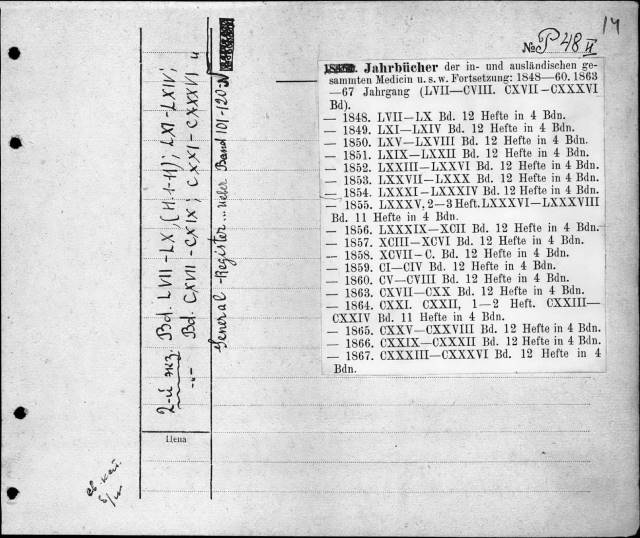 14
№ P 48 II
Jahrbücher der in- und ausländischen ge-
sammten Medicin u. s. w. Fortsetzung: 1848—60. 1863
—67 Jahrgang (LVII—CVIII. CXVII—CXXXVI
Bd).
— 1848. LVII—LX Bd. 12 Hefte in 4 Bdn.
— 1849. LXI—LXIV Bd. 12 Hefte in 4 Bdn.
— 1850. LXV—LXVIII Bd. 12 Hefte in 4 Bdn.
— 1851. LXIX—LXXII Bd. 12 Hefte in 4 Bdn.
— 1852. LXXIII—LXXVI Bd. 12 Hefte in 4 Bdn.
— 1853. LXXVII—LXXX Bd. 12 Hefte in 4 Bdn.
— 1854. LXXXI—LXXXIV Bd. 12 Hefte in 4 Bdn.
— 1855. LXXXV, 2—3 Heft. LXXXVI—LXXXVIII
Bd. 11 Hefte in 4 Bdn.
— 1856. LXXXIX—XCII Bd. 12 Hefte in 4 Bdn.
— 1857. XCIII—XCVI Bd. 12 Hefte in 4 Bdn.
— 1858. XCVII—C. Bd. 12 Hefte in 4 Bdn.
— 1859. CI—CIV Bd. 12 Hefte in 4 Bdn.
— 1860. CV—CVIII Bd. 12 Hefte in 4 Bdn.
— 1863. CXVII—CXX Bd. 12 Hefte in 4 Bdn.
— 1864. CXXI. CXXII, 1—2 Heft. CXXIII—
CXXIV Bd. 11 Hefte in 4 Bdn.
— 1865. CXXV—CXXVIII Bd. 12 Hefte in 4 Bdn.
— 1866. CXXIX—CXXXII Bd. 12 Hefte in 4 Bdn.
— 1867. CXXXIII—CXXXVI Bd. 12 Hefte in 4
Bdn.
2-й экз. Bd. LVII-LX, (H. 1-11); LXI-LXIV;
-"- Bd. CXVII-CXIX; CXXI-CXXXVI и
General-Register... ueber Band 101-120.
Цена